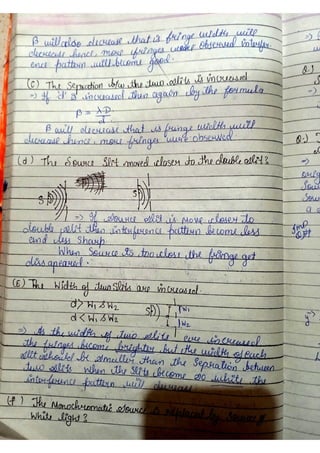 β will also decrease that is fringe width will
decrease hence more fringes were observed interfer-
ence pattern will become good.
(C) The Sepration b/w the two slits is increased
⇒ If 'd' is increased then again by the formula
β = λD/d
β will decrease that is fringe width will
decrease hence more fringes were observed
(d) The Source Slit moved closer to the double slit?
S S
⇒ If source slit is move closer to
double slit then interference pattern become less
and less sharp
When Source is too close the fringe get
dissapeared.
(E) The Width of two slits are increased.
d > W1 & W2
d < W1 & W2
S W1
W2
⇒ As the width of two slits are increased
the fringes become brighter but the width of each
slit should be smaller than the Sepration between
two slits when the slits become so while the
interference pattern will decrease
(f) The Monochromatic Source is replaced by Source of
White light?
Q.1
Q.